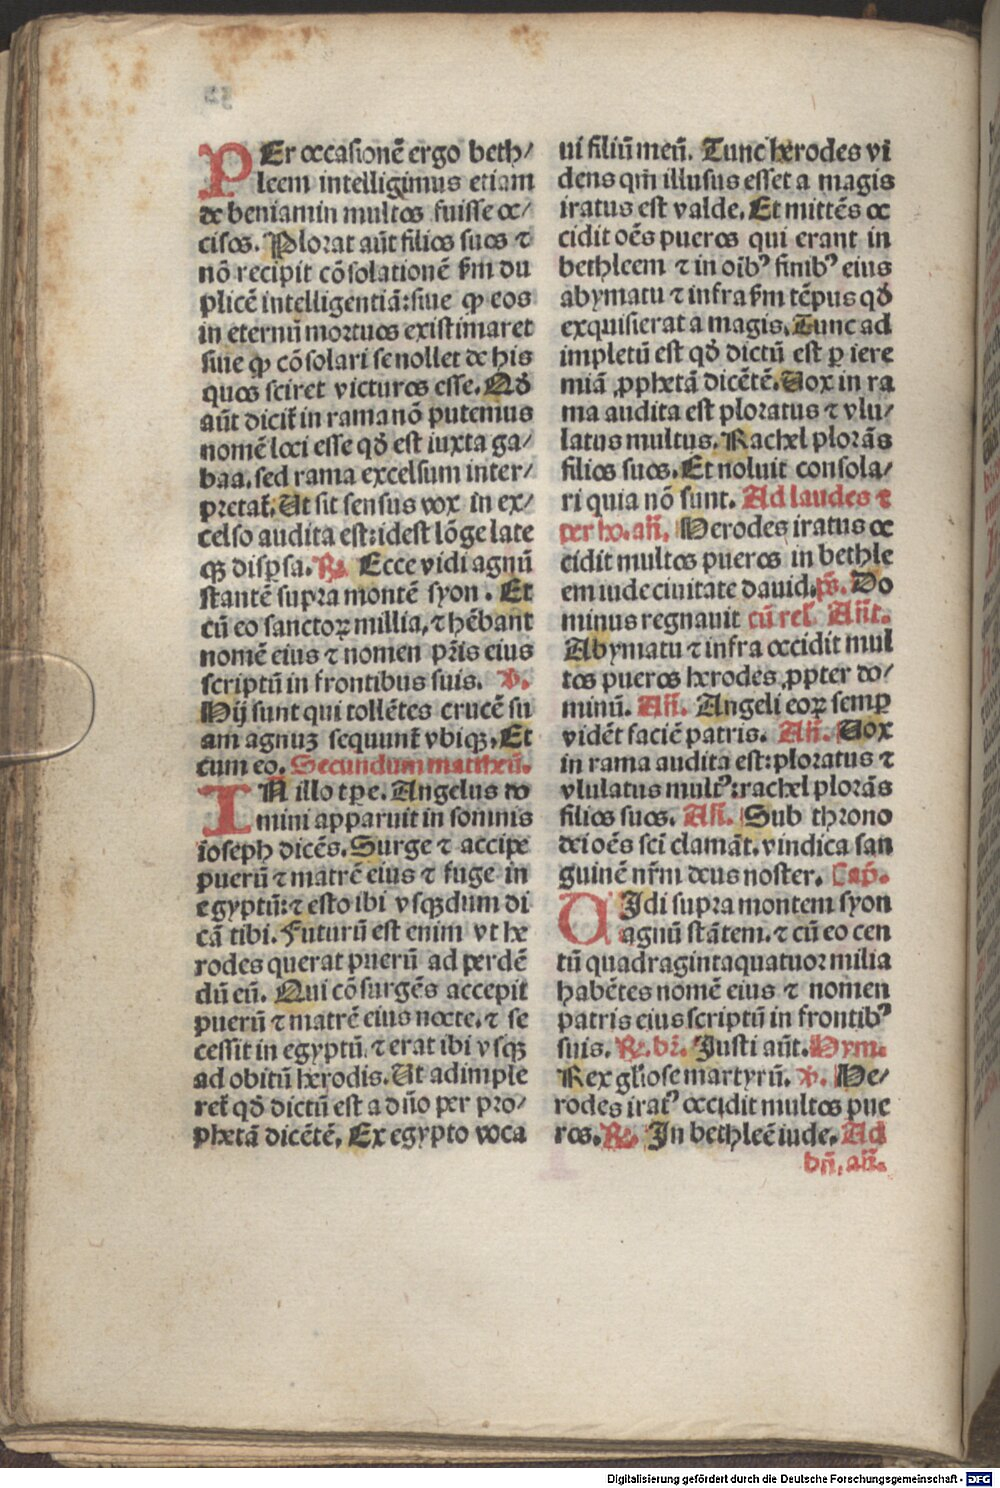 PEr occasionē ergo beth/
leem intelligimus etiam
de beniamin multos fuisse oc/
cisos. Plorat aūt filios suos ⁊
nō recipit cōsolationē ẜm du
plicē intelligentiā: siue ꝙ eos
in eternū mortuos existimaret
siue ꝙ cōsolari se nollet de his
quos sciret victuros esse. Qđ
aūt dicit̄ in rama nō putemus
nomē loci esse qđ est iuxta ga/
baa. sed rama excelsum inter/
pretat̄. Ut sit sensus vox in ex/
celso audita est: idest lōge late
qꝫ disꝑsa. ℟. Ecce vidi agnū
stantē supra montē syon. Et
cū eo sanctoꝝ millia, ⁊ hēbant
nomē eius ⁊ nomen pr̄is eius
scriptū in frontibus suis. ℣.
Hij sunt qui tollētes crucē su
am agnuꝫ sequunt̄ vbiqꝫ. Et
cum eo. Secundum mattheū.
IN illo tꝑe. Angelus do
mini apparuit in somnis
ioseph dicēs. Surge ⁊ accipe
puerū ⁊ matrē eius ⁊ fuge in
egyptū: ⁊ esto ibi vsqꝫ dum di
cā tibi. Futurū est enim vt he
rodes querat puerū ad perdē
dū eū. Qui cōsurgēs accepit
puerū ⁊ matrē eius nocte. ⁊ se
cessit in egyptū. ⁊ erat ibi vsqꝫ
ad obitū herodis. Ut adimple
ret̄ qđ dictū est a dn̄o per pro/
phetā dicētē. Ex egypto voca
ui filiū meū. Tunc herodes vi
dens qm̄ illusus esset a magis
iratus est valde. Et mittēs oc
cidit oēs pueros qui erant in
bethleem ⁊ in oībꝰ finibꝰ eius
abymatu ⁊ infra ẜm tēpus qđ
exquisierat a magis. Tunc ad
impletū est qđ dictū est ꝑ iere
miā ꝓphetā dicētē. Uox in ra
ma audita est ploratus ⁊ vlu/
latus multus. Rachel plorās
filios suos. Et noluit consola/
ri quia nō sunt. Ad laudes ⁊
per ho. añ. Herodes iratus oc
cidit multos pueros in bethle
em iude ciuitate dauid. p̄s. Do
minus regnauit cū rel̄ Añt.
Abymatu ⁊ infra occidit mul
tos pueros herodes ꝓpter do/
minū. Añ. Angeli eoꝝ semꝑ
vidēt faciē patris. Añ. Uox
in rama audita est: ploratus ⁊
vlulatus multꝰ: rachel plorās
filios suos. Añ. Sub throno
dei oēs sc̄i clamāt. vindica san
guinē nr̄m deus noster. Cap̄.
UIdi supra montem syon
agnū stātem. ⁊ cū eo cen
tū quadragintaquatuor milia
habētes nomē eius ⁊ nomen
patris eius scriptū in frontibꝰ
suis. ℟. br̄. Justi aūt. Hym.
Rex gl̄iose martyrū. ℣. He/
rodes iratꝰ occidit multos pue
ros. ℟. In bethleē iude. Ad
bn̄. añ.
Digitalisierung gefördert durch die Deutsche Forschungsgemeinschaft - DFG